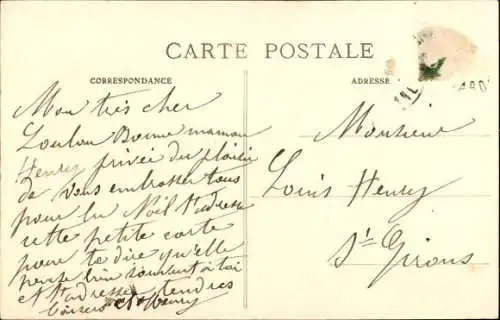 CARTE POSTALE
CORRESPONDANCE
ADRESSE
Mon très cher
Loulou Bonne maman
Henry privée du plaisir
de vous embrasser tous
pour la Noël t'adresse
cette petite carte
pour te dire qu'elle
pense bien souvent à toi
et t'adresse tendres
baisers Henry
Monsieur
Louis Henry
St Girons